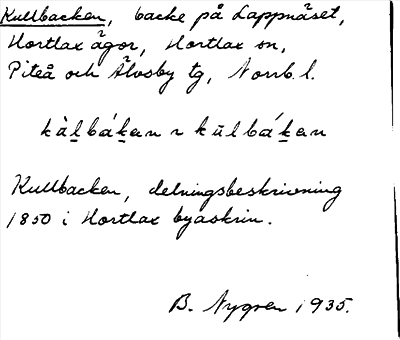 Kullbacken, backe på Lappnäset,
Hortlax ägor, Hortlax sn,
Piteå och Älvsby tg, Norrb. l.
kàlbákan r kúlbákan
Kullbacken, delningsbeskrivning
1850 i Hortlax byaskrin.
B. Nygren 1935.